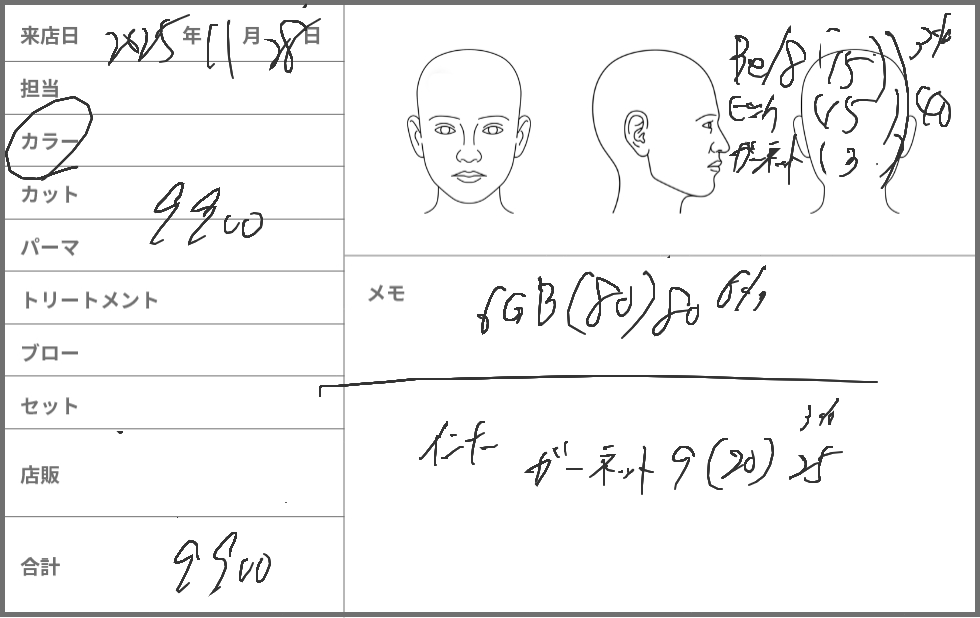 来店日 2025年 11月 28日
担当
カラー
カット
9900
パーマ
トリートメント
ブロー
セット
店販
合計 9900
Be/8 (15) 3%
ピンク (15) 40
ガーネット (3)
メモ
6GB(80)80 6%
インナー
3%
ガーネット 9(20) 25